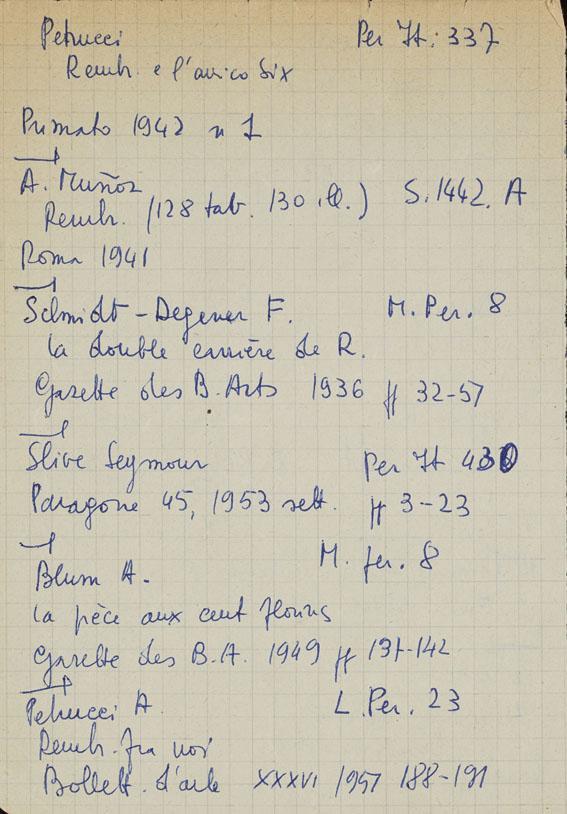 Petrucci Per It: 337
Rembr. e l'amico Six
Primato 1942 n 1
A. Muñoz
Rembr. (128 tab. 130 ill.) S. 1442. A
Roma 1941
Schmidt-Degener F. M. Per. 8
la double carrière de R.
Gazette des B. Arts 1936 pp 32-57
Slive Seymour Per It 430
Paragone 45, 1953 sett. pp 3-23
M. per. 8
Blum A.
la pièce aux cent florins
Gazette des B.A. 1949 pp 137-142
Petrucci A. L. Per. 23
Rembr. fra noi
Bollett. d'arte XXXVI 1951 188-191